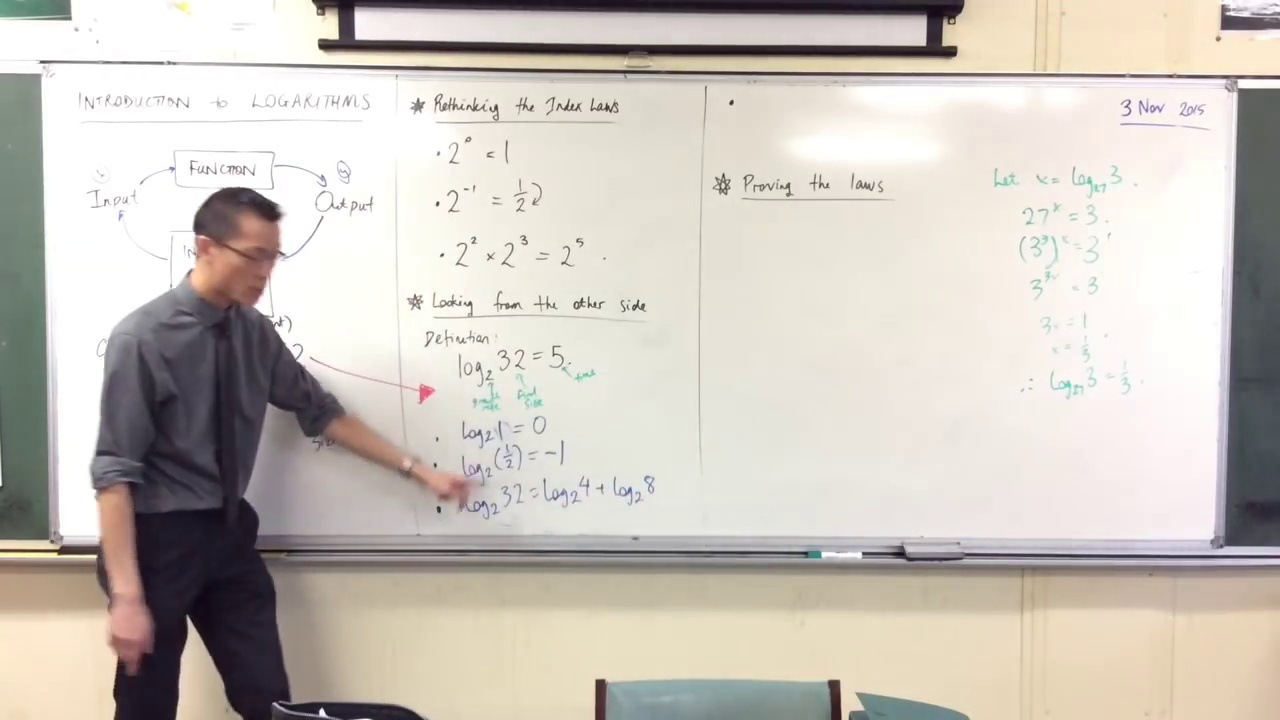 INTRODUCTION to LOGARITHMS
FUNCTION
Input
Output
* Rethinking the Index Laws
• 2⁰ = 1
• 2⁻¹ = 1/2
• 2² × 2³ = 2⁵ .
* Looking from the other side
Definition:
log₂ 32 = 5.
time
• log₂ 1 = 0
• log₂ (1/2) = -1
• log₂ 32 = log₂ 4 + log₂ 8
•
* Proving the laws
3 Nov 2015
Let x = log₂₇ 3 .
27ˣ = 3 .
(3³)ˣ = 3¹
3³ˣ = 3
3x = 1
x = 1/3 .
∴ log₂₇ 3 = 1/3 .